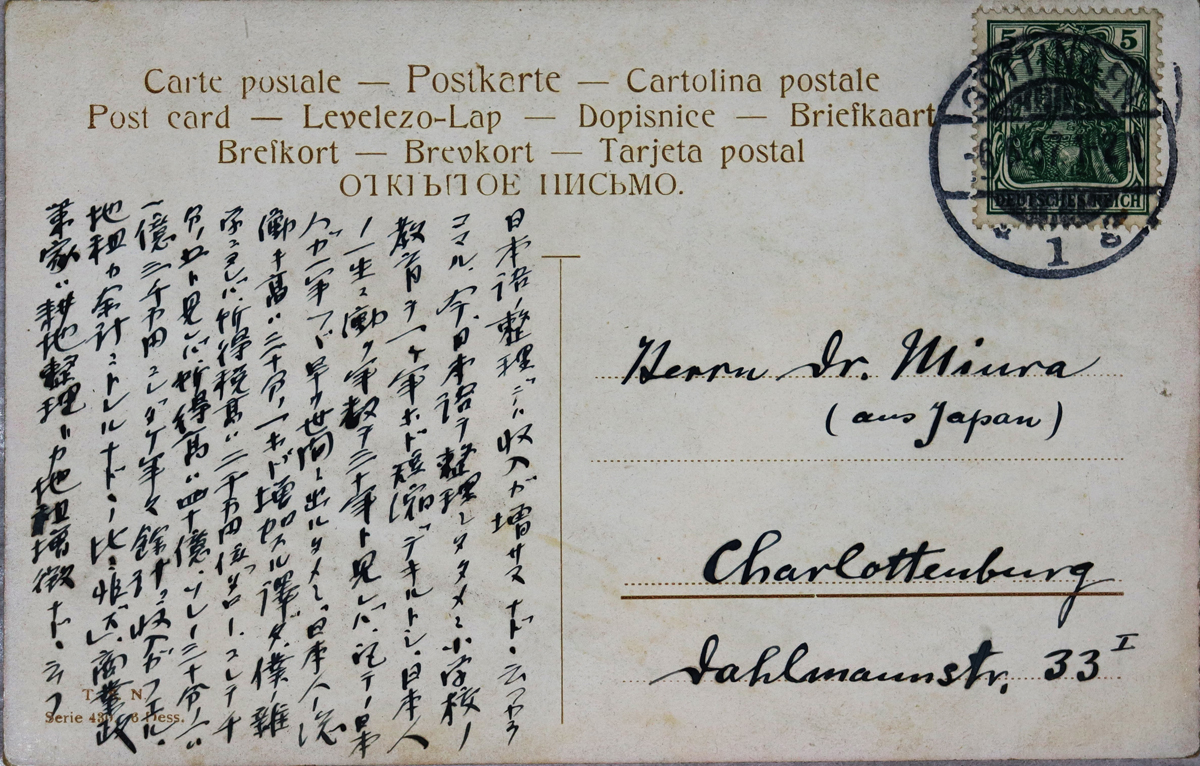 Carte postale — Postkarte — Cartolina postale
Post card — Levelezo-Lap — Dopisnice — Briefkaart
Brefkort — Brevkort — Tarjeta postal
ОТКРЫТОЕ ПИСЬМО.
5 5
DEUTSCHES REICH
1
Herrn Dr. Miura
(aus Japan)
Charlottenburg
Dahlmannstr. 33 I
日本語ノ整理デハ収入ガ増サヌナド、云フカラ
コマル、今、日本語ヲ整理シタタメニ小学校ノ
教育ヲ一ヶ年ホド短縮デキルトシ、日本人
ノ一生ニ働ク年数ヲ三十年ト見レバ、
人ガ一年ヅヽ早ク世間ニ出ルタメニ日本人ノ總
働キ高ハ三十分ノ一ホド増加スル譯ダ、僕ノ雜
所得税高ハ二千万円位ダロー、コレヲ千
分ノ ト見レバ所得高ハ四十億、ソレノ三十分ノ一ハ
一億三千万円コレダケ年々餘計ニ収入ガフエル、
地租ガ余計ニトレルナドノ比ニ非ズ、商業政
策家ハ耕地整理トカ地租増徴ナド、云フ
T. S. N.
Serie Dess.